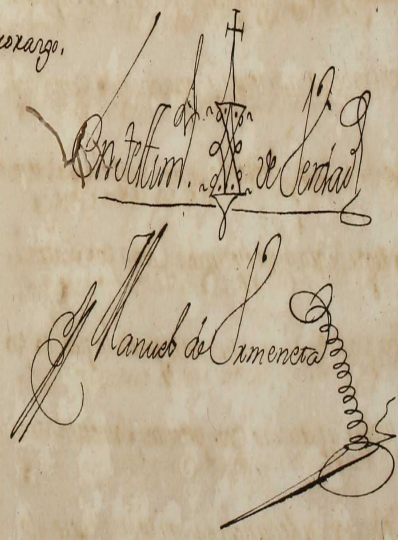 En testim.º de Verdad
Manuel de Vrmeneta